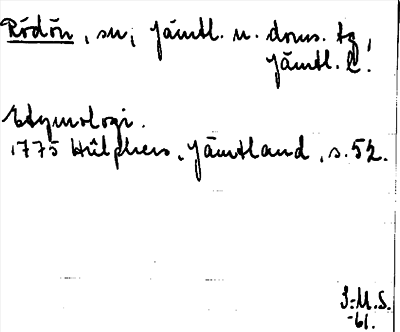 Rödön, sn, Jämtl. n. doms. tg,
Jämtl. l.
Etymologi.
1775 Hülphers, Jämtland, s. 52.
I.M.S.
-61.